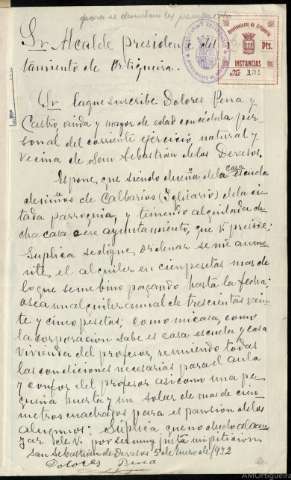 para se devuelvan los
Sr. Alcalde presidente del
tamiento de Ortigueira.
INSTANCIAS
Pts.
Sr. la que suscribe Dolores Pena y
Castro viuda y mayor de edad con cédula per
sonal del corriente ejercicio, natural y
vecina de San Sebastián de los Devesos,
Espone, que siendo dueña de la casa Escuela
de niños de Calbarios (Solitario) de la ci
tada parroquia, y teniendo alquilada di
cha casa a ese ayuntamiento, que V. preside;
Suplica se digne, ordenar se me aumen
te el alquiler en cien pesetas mas de
lo que se me bino pagando hasta la fecha;
o sea un alquiler anual de trescientas vein
te y cinco pesetas; como mi casa, como
la corporación sabe es casa escuela y casa
vivienda del profesor, reuniendo todas
las condiciones necesarias para el aula
y confor del profesor asi como una pe
queña huerta y un solar de mas de cien
metros cuadrados para espansion de los
alugnos: Suplica que no dudo alcan
zar de V. por ser muy justa mi peticion
San Sebastián de Devesos 5 de Enero de 1932
Dolores Pena
AMOrtigueira